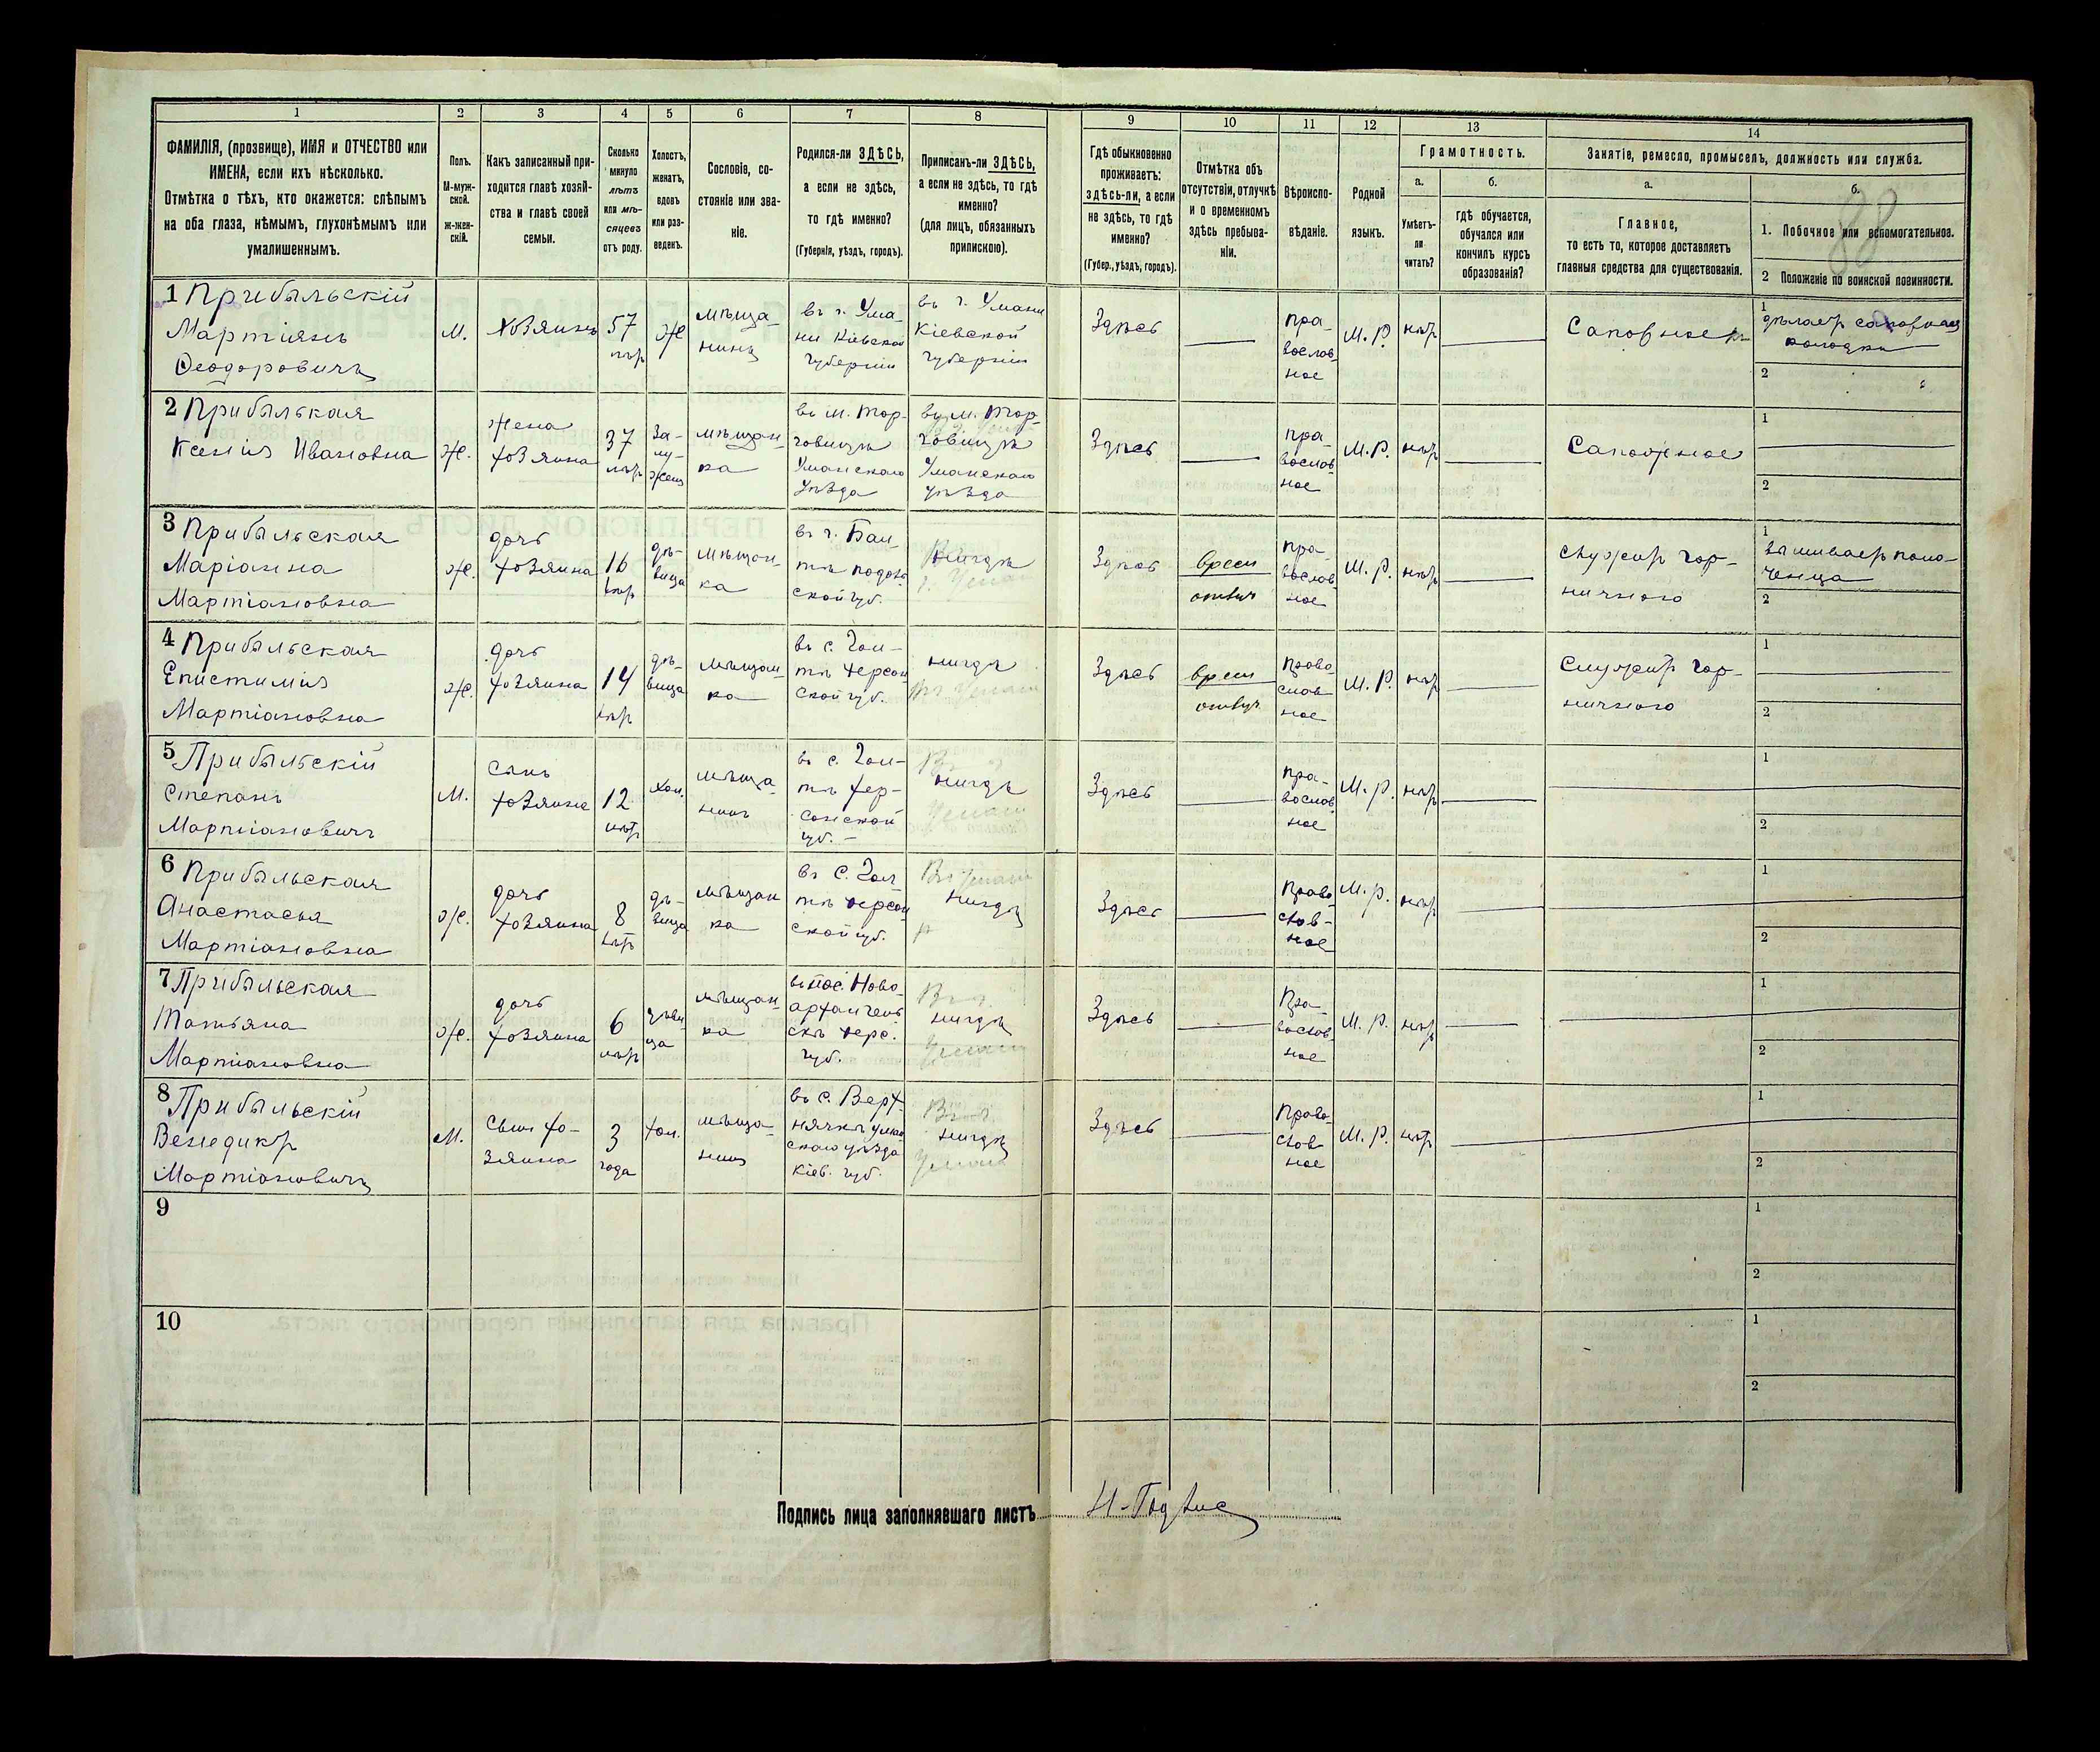 1 2 3 4 5 6 7 8 9 10 11 12 13 14
ФАМИЛІЯ, (прозвище), ИМЯ и ОТЧЕСТВО или
ИМЕНА, если ихъ нѣсколько.
Отмѣтка о тѣхъ, кто окажется: слѣпымъ
на оба глаза, нѣмымъ, глухонѣмымъ или
умалишеннымъ.
Полъ.
М-муж-
ской.
Ж-жен-
скій.
Какъ записанный при-
ходится главѣ хозяй-
ства и главѣ своей
семьи.
Сколько
минуло
лѣтъ
или мѣ-
сяцевъ
отъ роду.
Холостъ,
женатъ,
вдовъ
или раз-
веденъ.
Сословіе, со-
стояніе или зва-
ніе.
Родился-ли ЗДѢСЬ,
а если не здѣсь,
то гдѣ именно?
(Губернія, уѣздъ, городъ).
Приписанъ-ли ЗДѢСЬ,
а если не здѣсь, то гдѣ
именно?
(для лицъ, обязанныхъ
припискою).
Гдѣ обыкновенно
проживаетъ:
здѣсь-ли, а если
не здѣсь, то гдѣ
именно?
(Губер., уѣздъ, городъ).
Отмѣтка объ
отсутствіи, отлучкѣ
и о временномъ
здѣсь пребыва-
ніи.
Вѣроиспо-
вѣданіе.
Родной
языкъ.
Грамотность.
а.
Умѣетъ-
ли
читать?
б.
гдѣ обучается,
обучался или
кончилъ курсъ
образованія?
Занятіе, ремесло, промыселъ, должность или служба.
а.
Главное,
то есть то, которое доставляетъ
главныя средства для существованія.
б.
1. Побочное или вспомогательное.
2 Положеніе по воинской повинности.
88
1 Прибыльскій
Мартіянъ
Ѳеодоровичъ
М.
хозяинъ
57
лѣт
Ж
мѣща-
нинъ
въ г. Ума-
ни Кіевской
губерніи
въ г. Умани
Кіевской
губерніи
Здѣсь
пра-
вослов-
ное
М.Р.
нѣт
1
2
2 Прибылькая
Ксенія Ивановна
Ж.
жена
хозяина
37
лѣт
За-
му-
жем
мѣщан-
ка
въ м. Тор-
говицѣ
Уманскаго
Уѣзда
въ м. Тор-
говицѣ
Уманскаго
уѣзда
Здѣсь
пра-
вослов-
ное
М.Р.
нѣт
Сапожное
1
2
3 Прибыльская
Маріанна
Мартіановна
ж.
дочь
хозяина
16
лѣт
дѣ-
вица
мѣщан
ка
въ г. Бал-
тѣ подол
ской губ.
нигдѣ
Здѣсь
врем
отлуч
пра-
вослов
ное
М.Р.
нѣт
служит гор-
ничного
1
вышивает поло-
тенца
2
4 Прибыльская
Епистимія
Мартіановна
ж.
дочь
хозяина
14
лѣт
дѣ-
вица
мѣщан-
ка
въ с. Гол-
тѣ херсон
ской губ.
нигдѣ
Здѣсь
врем
отлуч
право
слав-
ное
М.Р.
нѣт
Служит гор-
ничного
1
2
5 Прибыльскій
Степанъ
Мартіановичъ
М.
сынъ
хозяина
12
лѣт
хол.
мѣща-
нинъ
въ с. Гол-
тѣ хер-
сонской
губ.
нигдѣ
Здѣсь
пра-
вослов
ное
М.Р.
нѣт
1
2
6 Прибыльская
Анастасья
Мартіановна
ж.
дочь
хозяина
8
лѣт
дѣ-
вица
мѣщан
ка
въ с. Гол
тѣ херсон
ской губ.
нигдѣ
Здѣсь
Право
слов-
ное
М.Р.
нѣт
1
2
7 Прибыльская
Татьяна
Мартіановна
ж.
дочь
хозяина
6
лѣт
дѣви
ца
мѣщан-
ка
въ пос. Ново-
архангель
скъ херс.
губ.
нигдѣ
Здѣсь
Пра-
вослов
ное
М.Р.
нѣт
1
2
8 Прибыльскій
Венедикт
Мартіановичъ
М.
сынъ хо-
зяина
3
года
хол.
мѣща-
нинъ
въ с. Верх-
нячкѣ уман
скаго уѣзда
Кіев. губ.
нигдѣ
Здѣсь
Право
слов
ное
М.Р.
нѣт
1
2
9
1
2
10
1
2
Подпись лица заполнявшаго листъ